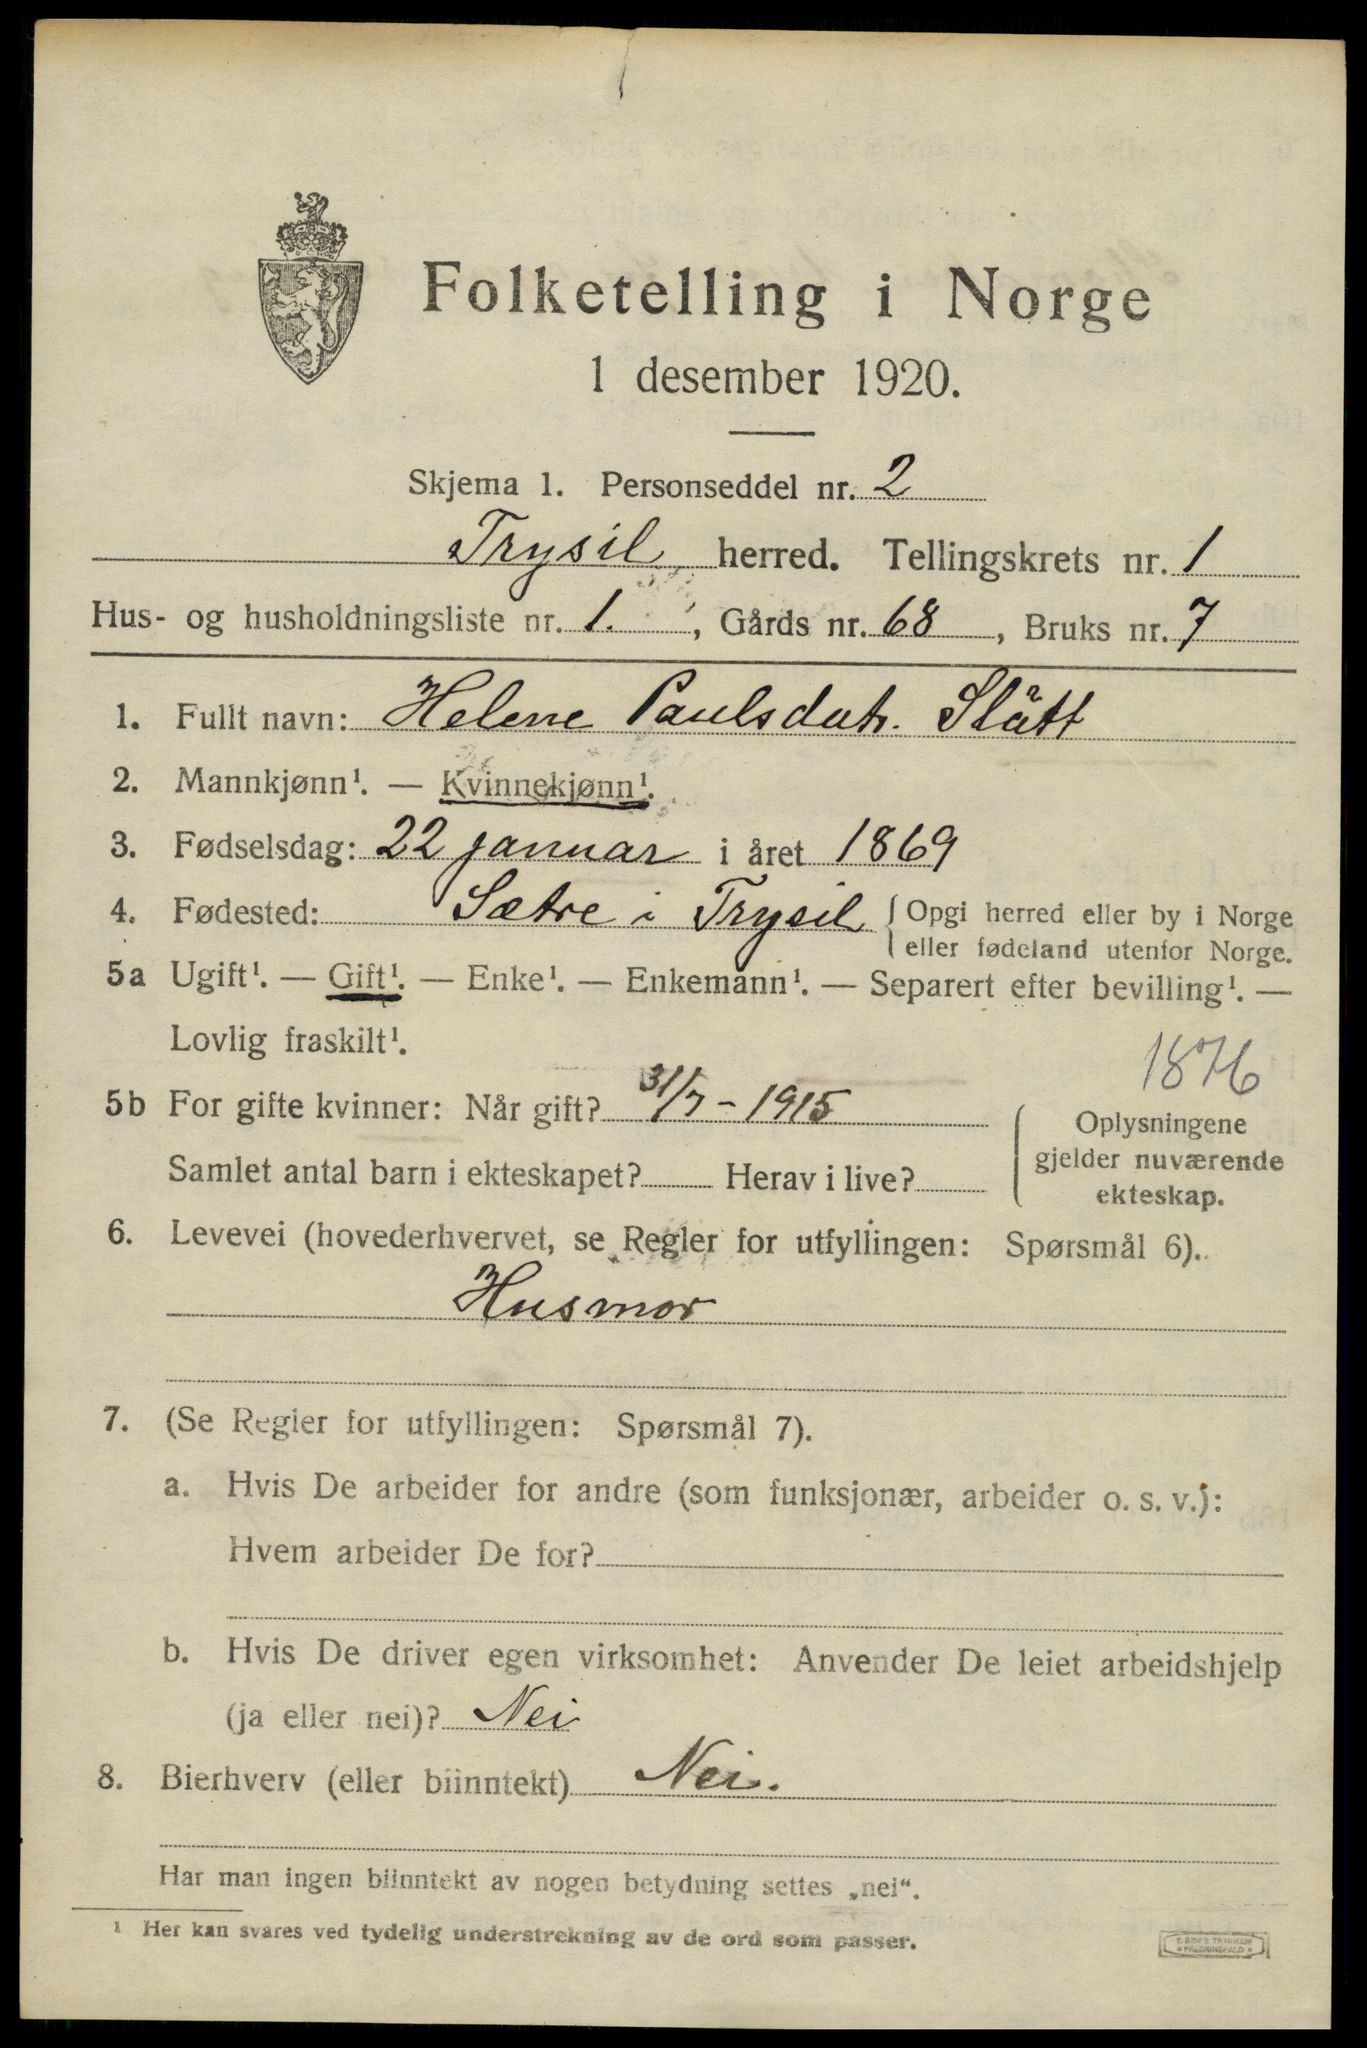 Folketelling i Norge
1 desember 1920.
Skjema 1. Personseddel nr. 2
Trysil herred. Tellingskrets nr. 1
Hus- og husholdningsliste nr. 1. , Gårds nr. 68 , Bruks nr. 7
1. Fullt navn: Helene Paulsdatr. Slått
2. Mannkjønn¹. — Kvinnekjønn¹.
3. Fødselsdag: 22 januar i året 1869
4. Fødested: Sætre i Trysil { Opgi herred eller by i Norge
eller fødeland utenfor Norge.
5a Ugift¹. — Gift¹. — Enke¹. — Enkemann¹. — Separert efter bevilling¹. —
Lovlig fraskilt¹.
1876
5b For gifte kvinner: Når gift? 31/7 - 1915
Samlet antal barn i ekteskapet? Herav i live?
Oplysningene
gjelder nuværende
ekteskap.
6. Levevei (hovederhvervet, se Regler for utfyllingen: Spørsmål 6).
Husmor
7. (Se Regler for utfyllingen: Spørsmål 7).
a. Hvis De arbeider for andre (som funksjonær, arbeider o. s. v.):
Hvem arbeider De for?
b. Hvis De driver egen virksomhet: Anvender De leiet arbeidshjelp
(ja eller nei)? Nei
8. Bierhverv (eller biinntekt) Nei.
Har man ingen biinntekt av nogen betydning settes „nei“.
¹ Her kan svares ved tydelig understrekning av de ord som passer.